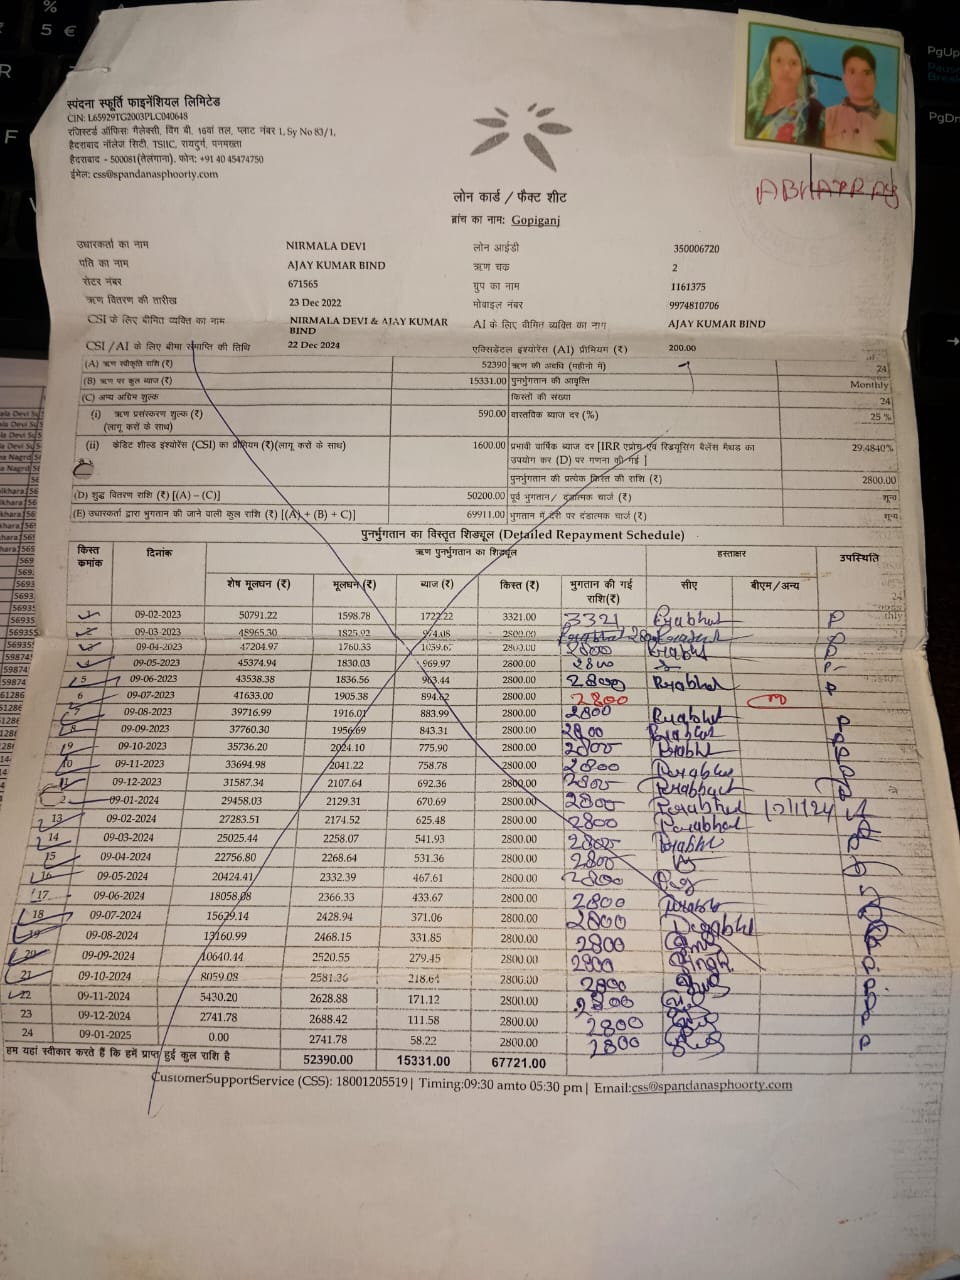 स्पंदना स्फूर्ति फाइनेंशियल लिमिटेड
CIN: L65929TG2003PLC040648
रजिस्टर्ड ऑफिस: गैलेक्सी, विंग बी, 16वां तल, प्लाट नंबर 1, Sy No 83/1,
हैदराबाद नॉलेज सिटी, TSIIC, रायदुर्ग, पनमख्ता
हैदराबाद - 500081(तेलंगाना). फोन: +91 40 45474750
ईमेल: css@spandanasphoorty.com
लोन कार्ड / फैक्ट शीट
ब्रांच का नाम: Gopiganj
उधारकर्ता का नाम NIRMALA DEVI लोन आईडी 350006720
पति का नाम AJAY KUMAR BIND ऋण चक्र 2
सेंटर नंबर 671565 ग्रुप का नाम 1161375
ऋण वितरण की तारीख 23 Dec 2022 मोबाइल नंबर 9974810706
CSI के लिए बीमित व्यक्ति का नाम NIRMALA DEVI & AJAY KUMAR BIND AI के लिए बीमित व्यक्ति का नाम AJAY KUMAR BIND
CSI/AI के लिए बीमा समाप्ति की तिथि 22 Dec 2024 एक्सिडेंटल इंश्योरेंस (AI) प्रीमियम (₹) 200.00
(A) ऋण स्वीकृति राशि (₹) 52390 ऋण की अवधि (महीनो में) 24
(B) ऋण पर कुल ब्याज (₹) 15331.00 पुनर्भुगतान की आवृत्ति Monthly
(C) अन्य अग्रिम शुल्क किस्तों की संख्या 24
(i) ऋण प्रसंस्करण शुल्क (₹) 590.00 वास्तविक ब्याज दर (%) 25 %
(लागू करों के साथ)
(ii) क्रेडिट शील्ड इंश्योरेंस (CSI) का प्रीमियम (₹)(लागू करों के साथ) 1600.00 प्रभावी वार्षिक ब्याज दर [IRR एप्रोच एवं रिड्यूसिंग बैलेंस मैथड का 29.4840%
उपयोग कर (D) पर गणना की गई ]
पुनर्भुगतान की प्रत्येक किस्त की राशि (₹) 2800.00
(D) शुद्ध वितरण राशि (₹) [(A) – (C)] 50200.00 पूर्व भुगतान / दंडात्मक चार्ज (₹) शून्य
(E) उधारकर्ता द्वारा भुगतान की जाने वाली कुल राशि (₹) [(A) + (B) + C)] 69911.00 भुगतान में देरी पर दंडात्मक चार्ज (₹) शून्य
पुनर्भुगतान का विस्तृत शिड्यूल (Detailed Repayment Schedule)
किस्त क्रमांक दिनांक ऋण पुनर्भुगतान का शिड्यूल हस्ताक्षर उपस्थिति
शेष मूलधन (₹) मूलधन (₹) ब्याज (₹) किस्त (₹) भुगतान की गई राशि(₹) सीए बीएम/अन्य
1 09-02-2023 50791.22 1598.78 1722.22 3321.00 3321 Prabhat P
2 09-03-2023 48965.30 1825.92 974.08 2800.00
3 09-04-2023 47204.97 1760.33 1039.67 2800.00 2800
4 09-05-2023 45374.94 1830.03 969.97 2800.00 2800
5 09-06-2023 43538.38 1836.56 963.44 2800.00 2800 P
6 09-07-2023 41633.00 1905.38 894.62 2800.00 2800
7 09-08-2023 39716.99 1916.01 883.99 2800.00 2800
8 09-09-2023 37760.30 1956.69 843.31 2800.00 2800
9 09-10-2023 35736.20 2024.10 775.90 2800.00 2800
10 09-11-2023 33694.98 2041.22 758.78 2800.00 2800
11 09-12-2023 31587.34 2107.64 692.36 2800.00 2800
12 09-01-2024 29458.03 2129.31 670.69 2800.00 2800
13 09-02-2024 27283.51 2174.52 625.48 2800.00 2800
14 09-03-2024 25025.44 2258.07 541.93 2800.00 2800
15 09-04-2024 22756.80 2268.64 531.36 2800.00 2800
16 09-05-2024 20424.41 2332.39 467.61 2800.00 2800
17 09-06-2024 18058.08 2366.33 433.67 2800.00 2800
18 09-07-2024 15629.14 2428.94 371.06 2800.00 2800
19 09-08-2024 13160.99 2468.15 331.85 2800.00 2800
20 09-09-2024 10640.44 2520.55 279.45 2800.00 2800
21 09-10-2024 8059.08 2581.36 218.64 2800.00 2800
22 09-11-2024 5430.20 2628.88 171.12 2800.00 2800
23 09-12-2024 2741.78 2688.42 111.58 2800.00 2800
24 09-01-2025 0.00 2741.78 58.22 2800.00 2800 P
हम यहां स्वीकार करते हैं कि हमें प्राप्त हुई कुल राशि है 52390.00 15331.00 67721.00
CustomerSupportService (CSS): 18001205519| Timing:09:30 amto 05:30 pm| Email:css@spandanasphoorty.com